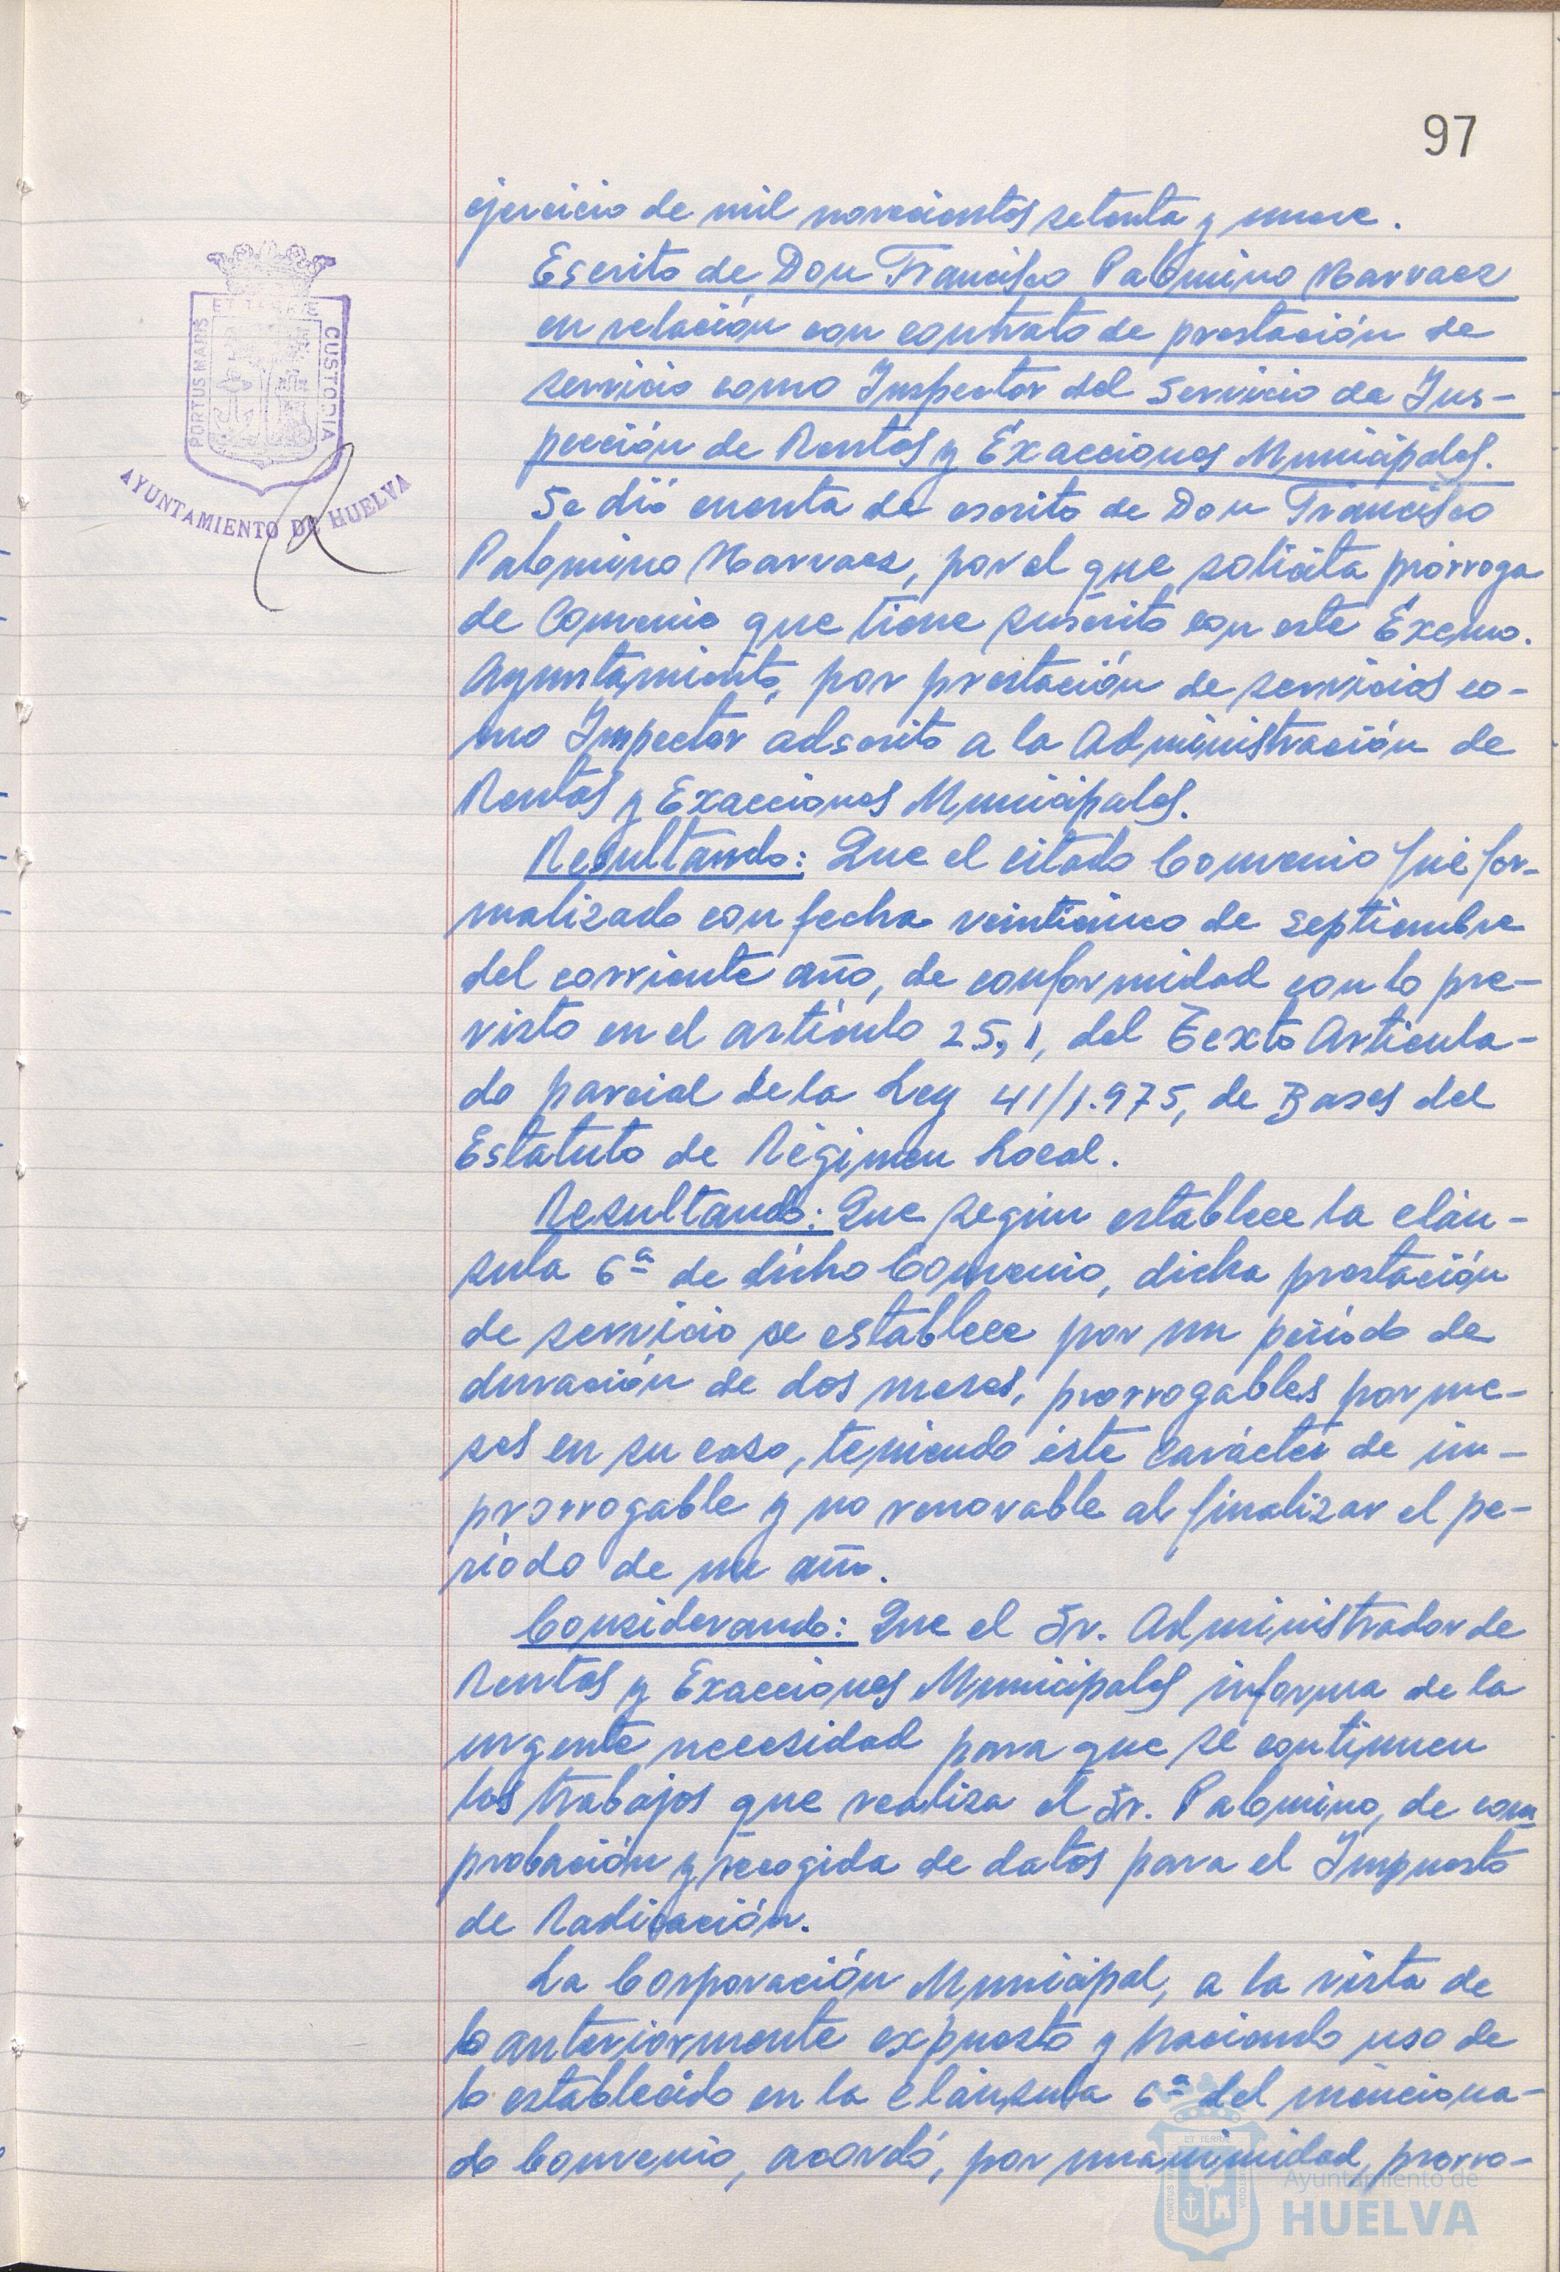 97
ejercicio de mil novecientos setenta y nueve.
Escrito de Don Francisco Palomino Narvaez
en relación con contrato de prestación de
servicio como Inspector del Servicio de Ins-
pección de Rentas y Exacciones Municipales.
Se dió cuenta de escrito de Don Francisco
Palomino Narvaez, por el que solicita prórroga
de Convenio que tiene suscrito con este Excmo.
Ayuntamiento, por prestación de servicios co-
mo Inspector adscrito a la Administración de
Rentas y Exacciones Municipales.
Resultando: Que el citado Convenio fué for-
malizado con fecha veinticinco de septiembre
del corriente año, de conformidad con lo pre-
visto en el artículo 25,1, del Texto Articula-
do parcial de la Ley 41/1.975, de Bases del
Estatuto de Régimen Local.
Resultando: Que según establece la cláu-
sula 6ª de dicho Convenio, dicha prestación
de servicio se establece por un período de
duración de dos meses, prorrogables por me-
ses en su caso, teniendo éste carácter de im-
prorrogable y no renovable al finalizar el pe-
ríodo de un año.
Considerando: Que el Sr. Administrador de
Rentas y Exacciones Municipales informa de la
urgente necesidad para que se continuen
los trabajos que realiza el Sr. Palomino, de com
probación y recogida de datos para el Impuesto
de Radicación.
La Corporación Municipal, a la vista de
lo anteriormente expuesto y haciendo uso de
lo establecido en la cláusula 6ª del menciona-
do Convenio, acordó, por unanimidad, prorro-
PORTUS MARIS
ET TERRAE
CUSTODIA
AYUNTAMIENTO DE HUELVA
ET TERRA
Ayuntamiento de
HUELVA